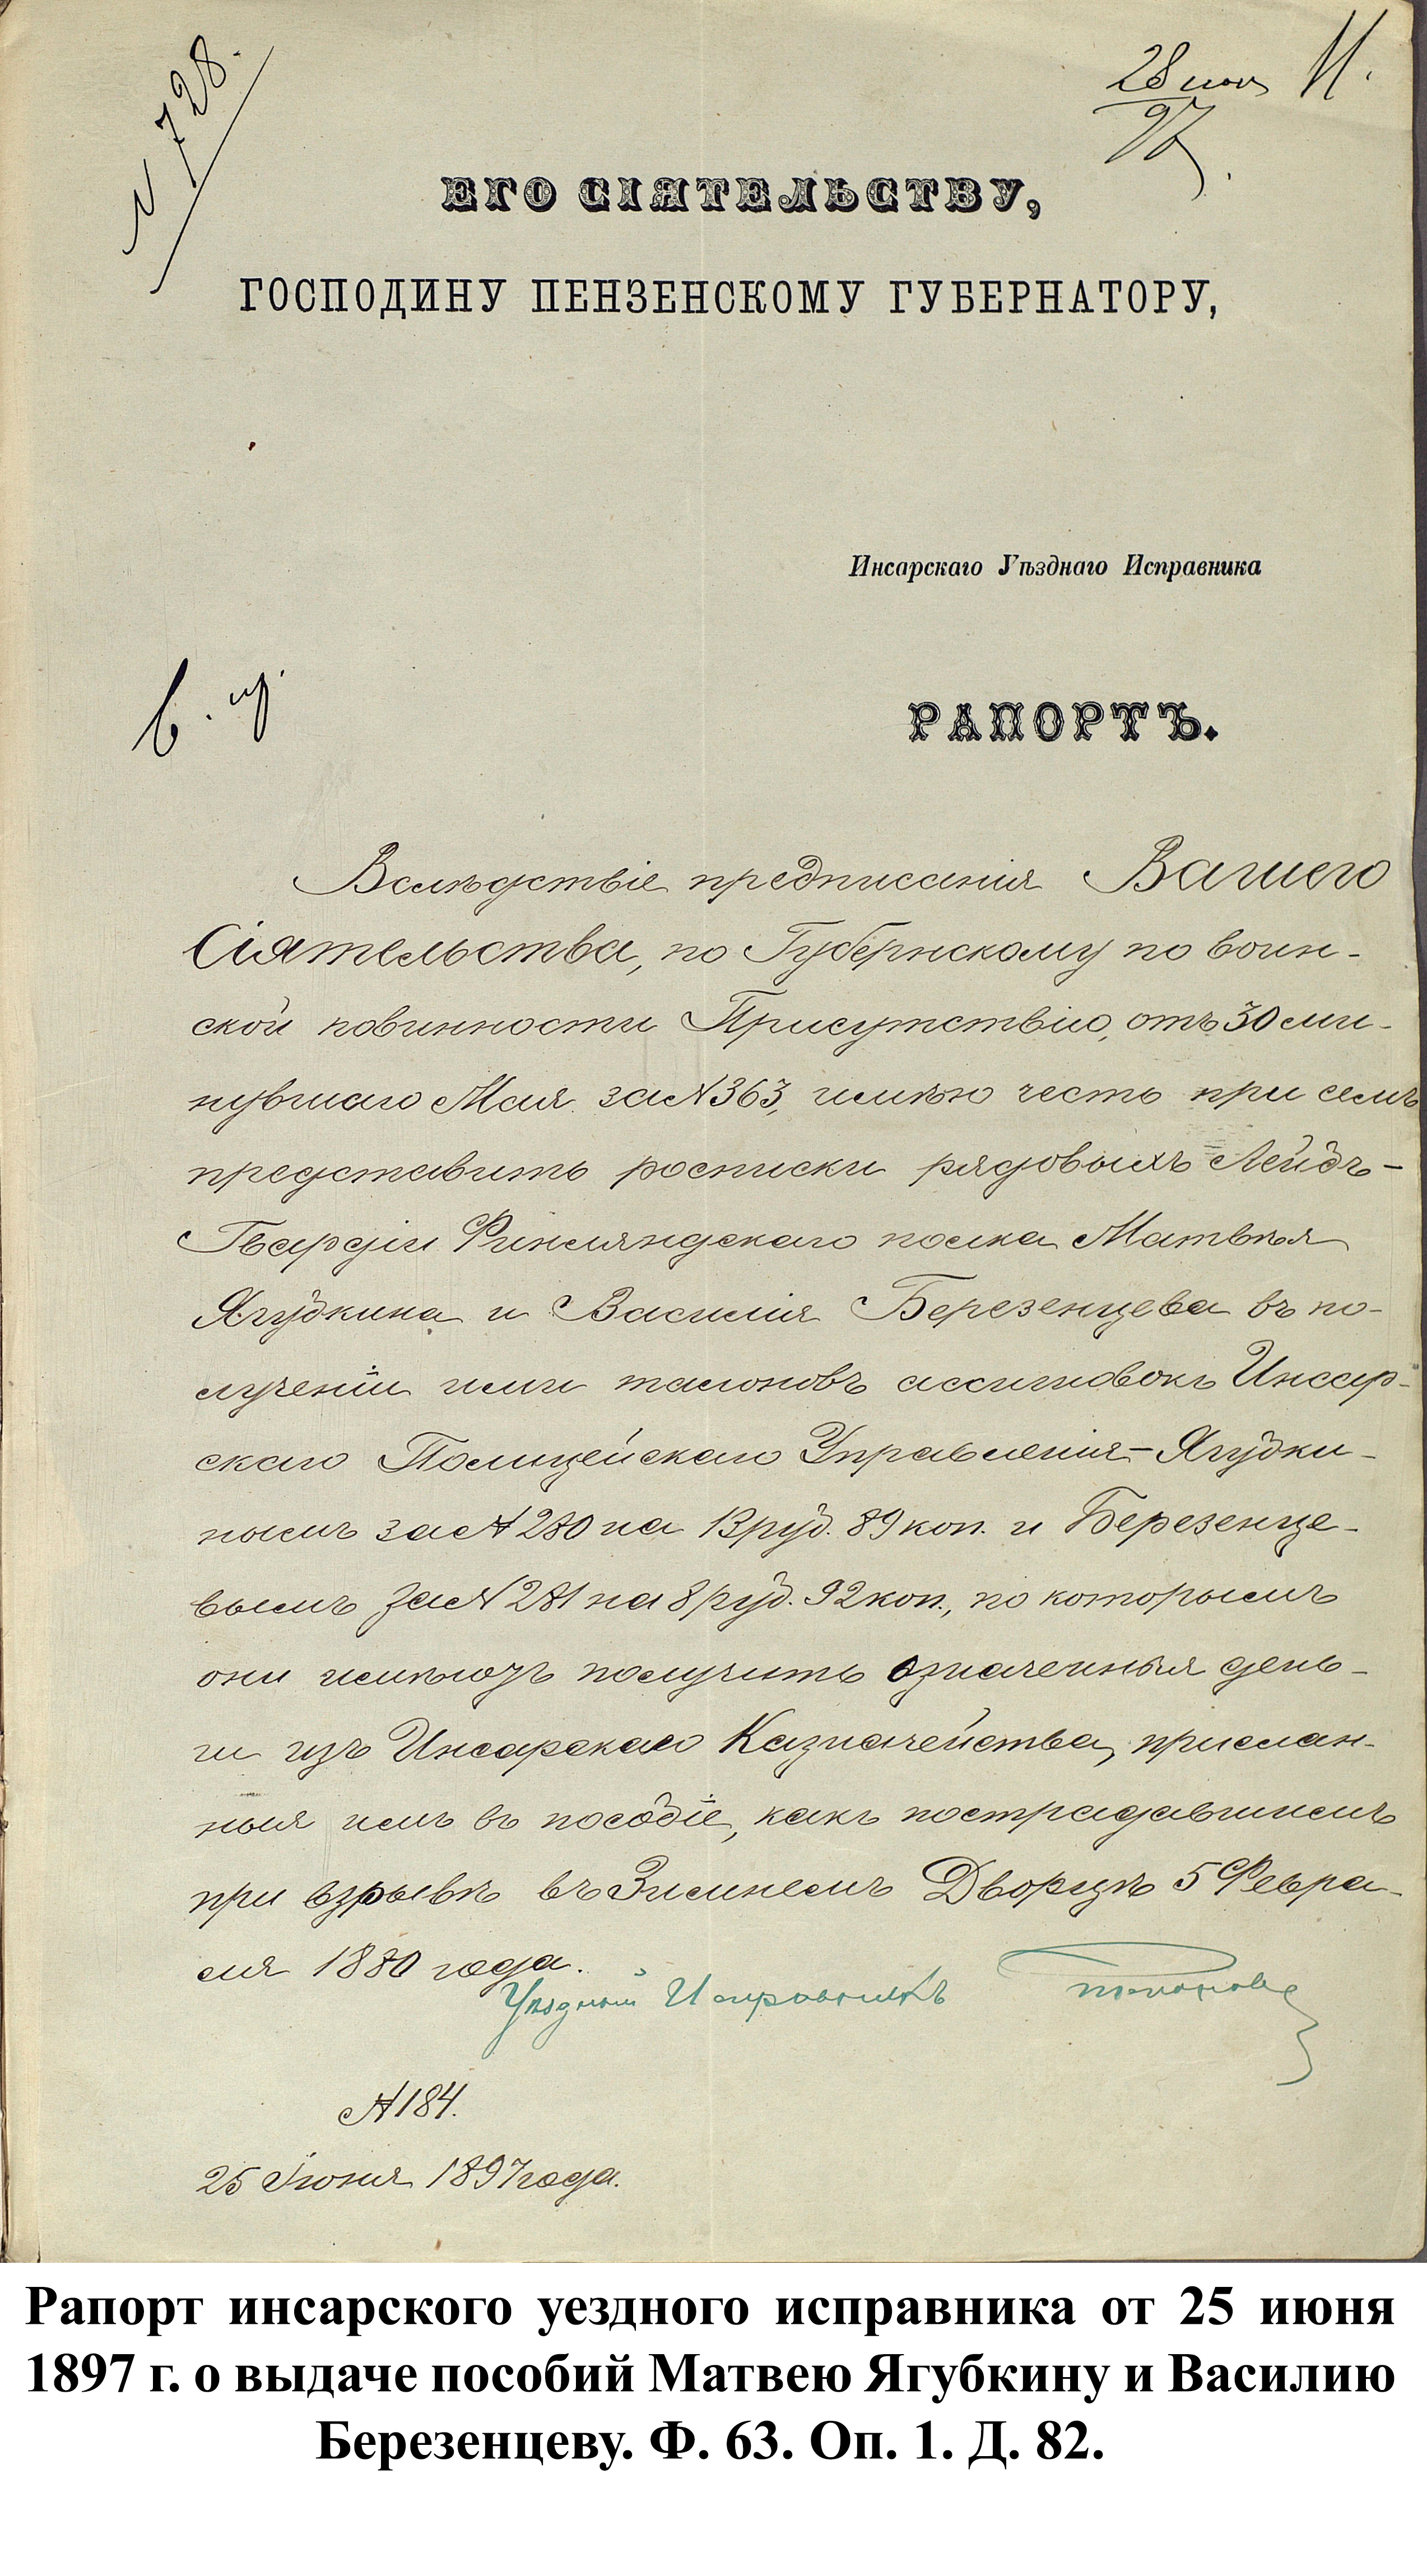 № 728.
28 июн 11.
97
ЕГО СІЯТЕЛЬСТВУ,
ГОСПОДИНУ ПЕНЗЕНСКОМУ ГУБЕРНАТОРУ,
Инсарскаго Уѣзднаго Исправника
В.
РАПОРТЪ.
Вслѣдствіе предписанія Вашего
Сіятельства, по Губернскому по воин-
ской повинности Присутствію, отъ 30 ми-
нувшаго Мая за № 363, имѣю честь при семъ
представить росписки рядовыхъ Лейбъ-
Гвардіи Финляндскаго полка Матвѣя
Ягубкина и Василія Березенцева въ по-
лученіи ими талоновъ ассигновокъ Инсар-
скаго Полицейскаго Управленія – Ягубки-
нымъ за № 280 на 13 руб. 89 коп. и Березенце-
вымъ за № 281 на 8 руб. 92 коп., по которымъ
они имѣютъ получить означенныя день-
ги изъ Инсарскаго Казначейства, прислан-
ныя имъ въ пособіе, какъ пострадавшимъ
при взрывѣ въ Зимнемъ Дворцѣ 5 Февра-
ля 1880 года.
Уѣздный Исправникъ
№ 184.
25 Іюня 1897 года.
Рапорт инсарского уездного исправника от 25 июня
1897 г. о выдаче пособий Матвею Ягубкину и Василию
Березенцеву. Ф. 63. Оп. 1. Д. 82.